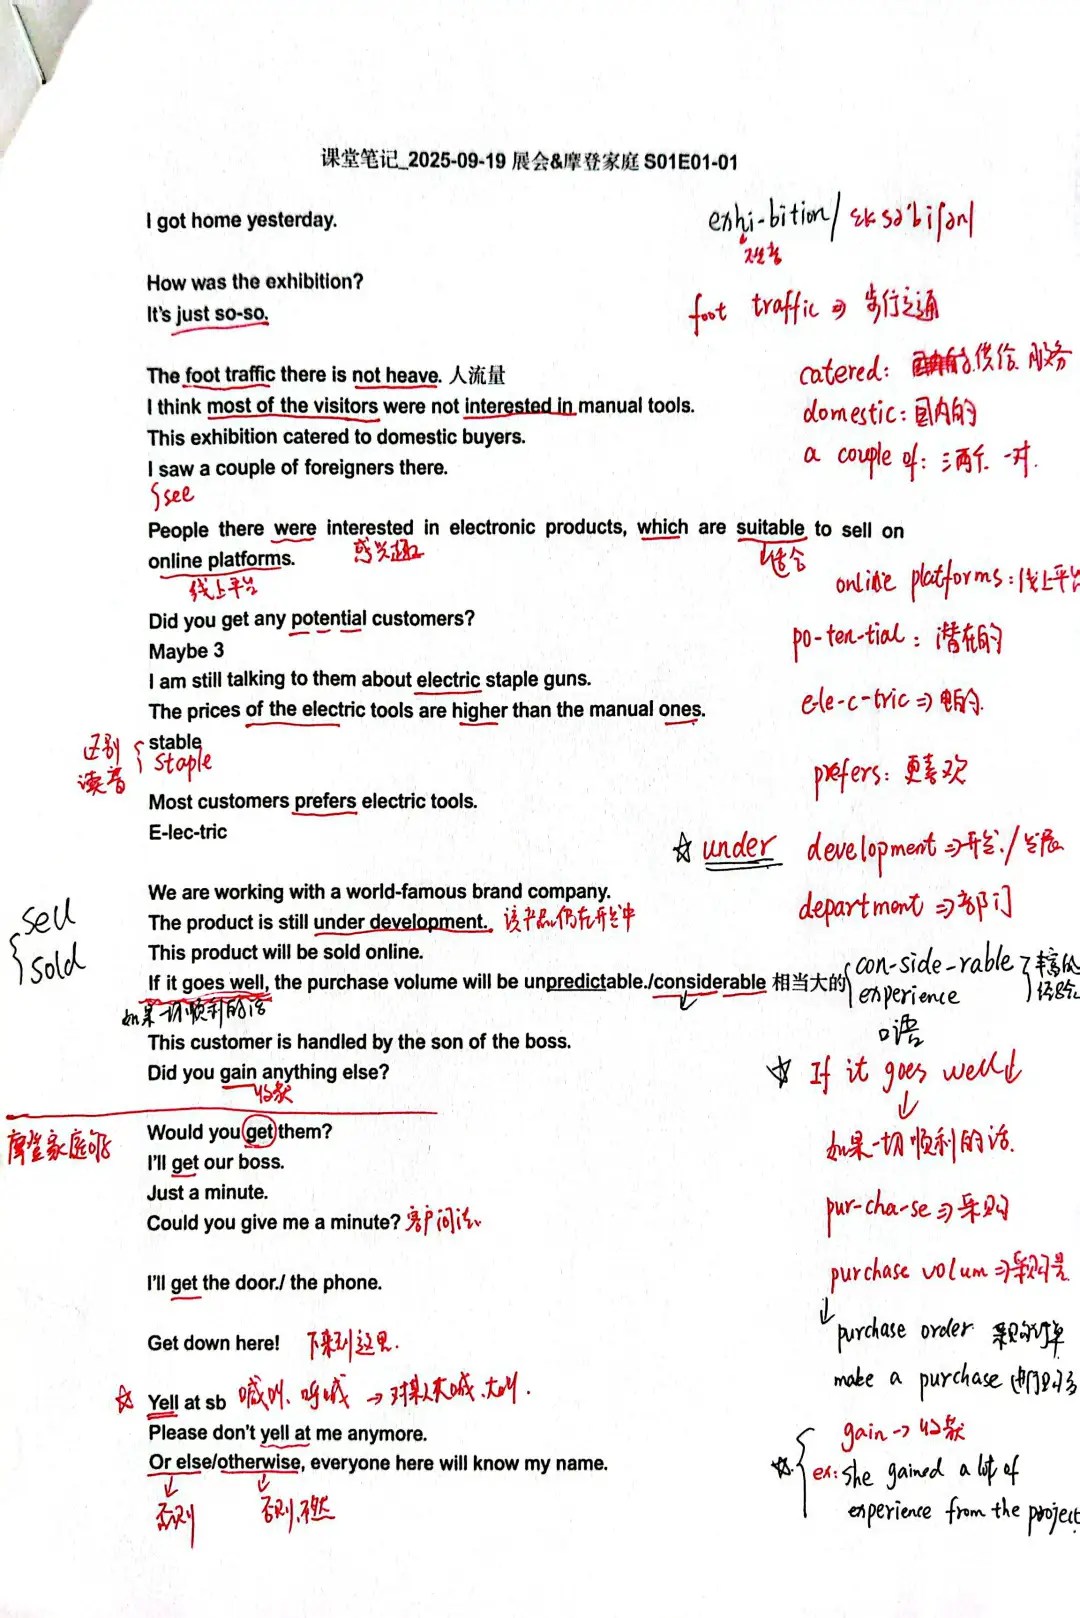 课堂笔记_2025-09-19 展会&摩登家庭 S01E01-01
I got home yesterday.
exhi-bition/ɛksə'biʃən/
How was the exhibition?
It's just so-so.
foot traffic ⇒ 步行交通
The foot traffic there is not heave. 人流量
catered: 供给 服务
I think most of the visitors were not interested in manual tools.
domestic: 国内的
This exhibition catered to domestic buyers.
a couple of: 三两个 一对.
I saw a couple of foreigners there.
see
People there were interested in electronic products, which are suitable to sell on
感兴趣
适合
online platforms.
线上平台
online platforms: 线上平台
Did you get any potential customers?
po-ten-tial: 潜在的
Maybe 3
I am still talking to them about electric staple guns.
e-le-c-tric ⇒ 电的.
The prices of the electric tools are higher than the manual ones.
区别
读音
stable
staple
prefers: 更喜欢
Most customers prefers electric tools.
E-lec-tric
☆ under development ⇒ 开发./发展
We are working with a world-famous brand company.
department ⇒ 部门
sell
sold
The product is still under development. 该产品仍在开发中
This product will be sold online.
con-side-rable
If it goes well, the purchase volume will be unpredictable./considerable 相当大的
experience
经验
如果一切顺利的话
口语
This customer is handled by the son of the boss.
☆ If it goes well
Did you gain anything else?
收获
如果一切顺利的话.
摩登家庭
Would you get them?
I'll get our boss.
Just a minute.
pur-cha-se ⇒ 采购
Could you give me a minute? 客户问法
purchase volum ⇒ 采购量
I'll get the door./ the phone.
purchase order 采购订单
Get down here! 下来到这里.
make a purchase
☆ Yell at sb 喊叫、呼喊 → 对某人大喊.大叫.
Please don't yell at me anymore.
☆ gain → 收获
Or else/otherwise, everyone here will know my name.
ex: she gained a lot of
否则
否则.不然
experience from the project